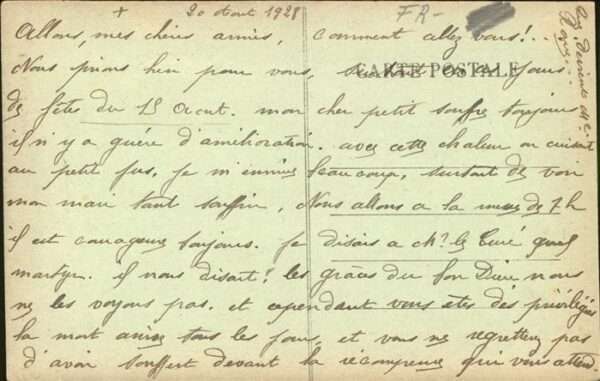 + 20 Aout 1928 FR-
Allons, mes chères amies, comment allez vous!..
Nous prions bien pour vous, jours
CARTE POSTALE
de fêtes du 15 Aout. mon cher petit souffre toujours
il n'y a guère d'amélioration. avec cette chaleur on cuisait
au petit feu. Je m'ennuie beaucoup, surtout de voir
mon mari tant souffrir, Nous allons a la messe de 7h
il est courageux toujours. Je disais a Mr. le Curé quel
martyr. il nous disait! les grâces du bon Dieu nous
ne les voyons pas. et cependant vous êtes des privilégiés
la mort arrive tous les jours, et vous ne regrettez pas
d'avoir souffert devant la récompense qui vous attend.